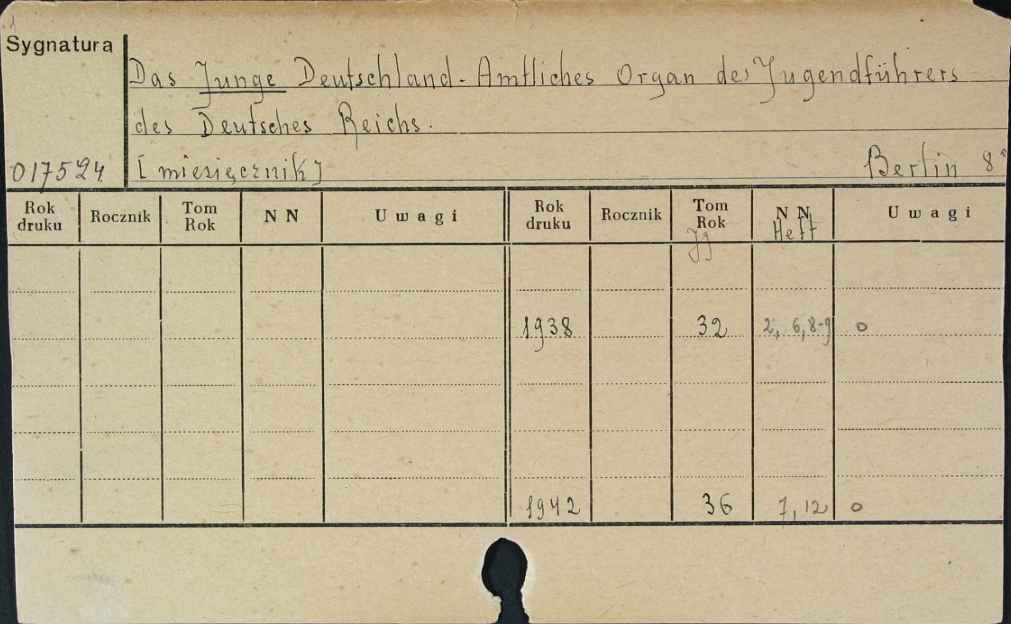 Sygnatura
Das Junge Deutschland. Amtliches Organ des Jugendführers
des Deutsches Reichs.
017524 [miesięcznik] Berlin 8°
Rok druku Rocznik Tom Rok N N Uwagi Rok druku Rocznik Tom Rok N N Uwagi
Jg Heft
1938 32 2, 6, 8-9 o
1942 36 7, 12 o